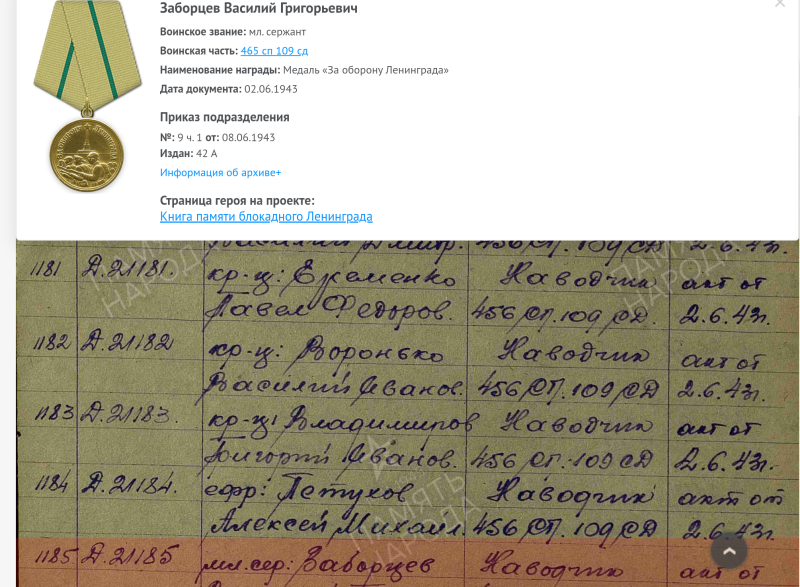 Заборцев Василий Григорьевич
Воинское звание: мл. сержант
Воинская часть: 465 сп 109 сд
Наименование награды: Медаль «За оборону Ленинграда»
Дата документа: 02.06.1943
Приказ подразделения
№: 9 ч. 1 от: 08.06.1943
Издан: 42 А
Информация об архиве+
Страница героя на проекте:
Книга памяти блокадного Ленинграда
Василий Дмитр. 456 СП. 109 СД 2.6.43г.
1181 Д.21181. кр-ц: Еременко Наводчик акт от
Павел Федоров. 456 СП. 109 СД. 2.6.43г.
1182 Д.21182 кр-ц: Воронько Наводчик акт от
Василий Иванов. 456 СП. 109 СД 2.6.43г.
1183 Д.21183. кр-ц: Владимиров Наводчик акт от
Григорий Иванов. 456 СП. 109 СД 2.6.43г.
1184 Д.21184. ефр: Петухов Наводчик акт от
Алексей Михаил. 456 СП. 109 СД 2.6.43г.
1185 Д.21185 мл.сер: Заборцев Наводчик акт от
ПАМЯТЬ НАРОДА